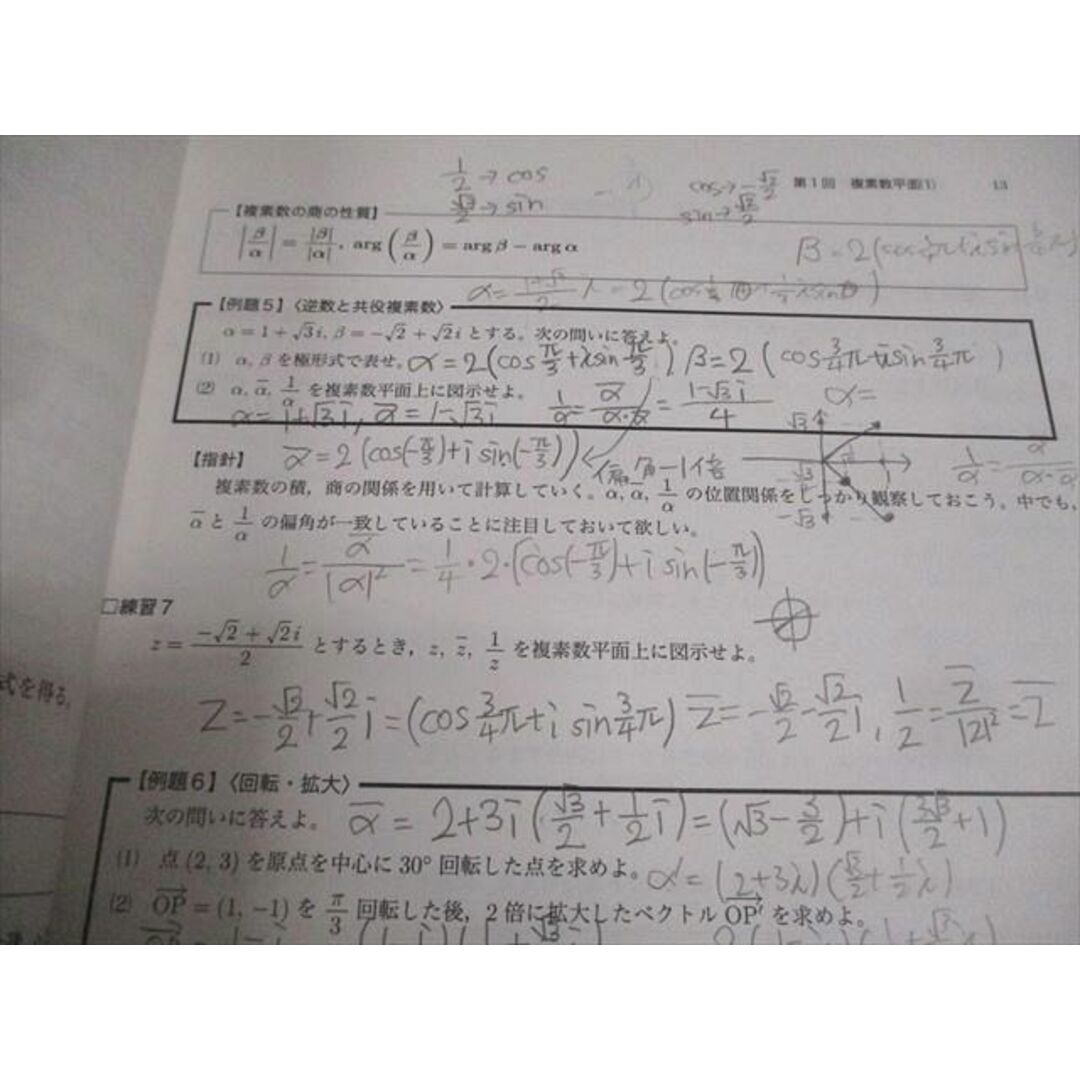 1/2 → cos
√3/2 → sin
cos → -√2/2
sin → √2/2
第1回 複素数平面(1) 13
【複素数の商の性質】
|β/α| = |β|/|α|, arg(β/α) = arg β − arg α
【例題5】〈逆数と共役複素数〉
α = 1 + √3i, β = −√2 + √2i とする。次の問いに答えよ。
(1) α, βを極形式で表せ。 α = 2(cos π/3 + i sin π/3) β = 2(cos 3/4π + i sin 3/4π)
(2) α, ᾱ, 1/α を複素数平面上に図示せよ。 1/α = ᾱ/α·ᾱ = 1−√3i/4 α =
α = 1+√3i, ᾱ = 1−√3i
【指針】 ᾱ = 2(cos(−π/3) + i sin(−π/3)) ← 偏角−1倍
複素数の積, 商の関係を用いて計算していく。α, ᾱ, 1/α の位置関係をしっかり観察しておこう。中でも,
ᾱ と 1/α の偏角が一致していることに注目しておいて欲しい。
1/α = ᾱ/|α|² = 1/4 · 2 · (cos(−π/3) + i sin(−π/3))
□練習7
z = −√2 + √2i/2 とするとき, z, z̄, 1/z を複素数平面上に図示せよ。
式を得る。
z = −√2/2 + √2/2 i = (cos 3/4π + i sin 3/4π) z̄ = −√2/2 − √2/2 i, 1/z = z̄/|z|² = z̄
【例題6】〈回転・拡大〉
次の問いに答えよ。 ᾱ = 2+3i(√3/2 + 1/2 i) = (√3 − 3/2) + i(3√3/2 + 1)
(1) 点(2, 3)を原点を中心に30°回転した点を求めよ。 α = (2+3i)(√3/2 + 1/2 i)
(2) OP→ = (1, −1) を π/3 回転した後, 2倍に拡大したベクトル OP'→ を求めよ。